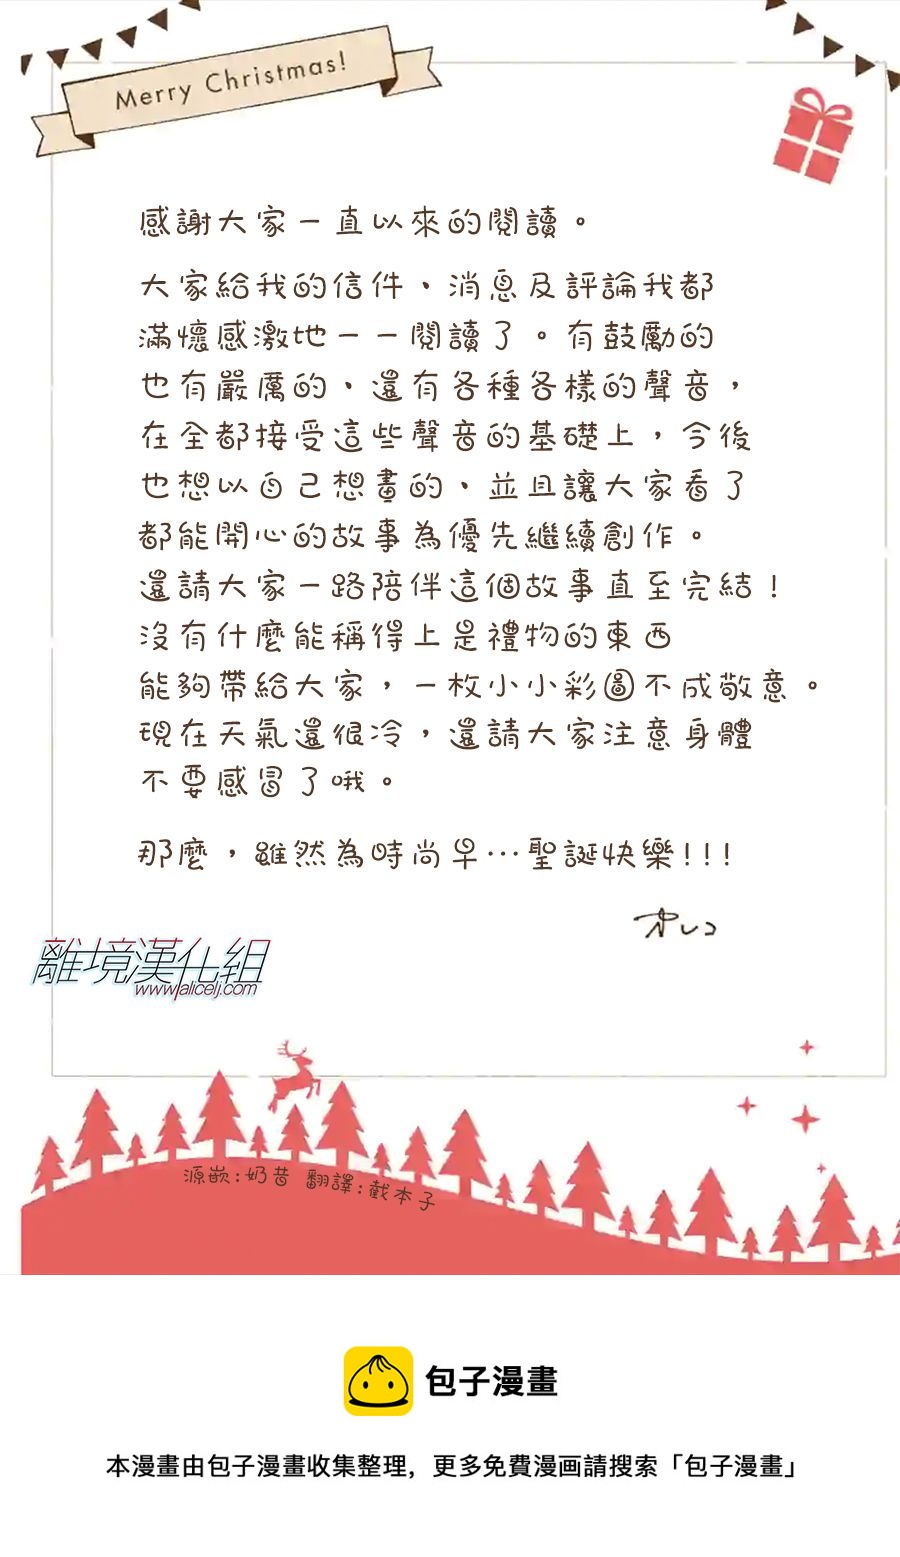 Merry Christmas!
感謝大家一直以來的閱讀。
大家給我的信件、消息及評論我都
滿懷感激地一一閱讀了。有鼓勵的
也有嚴厲的、還有各種各樣的聲音，
在全都接受這些聲音的基礎上，今後
也想以自己想畫的、並且讓大家看了
都能開心的故事為優先繼續創作。
還請大家一路陪伴這個故事直至完結！
沒有什麼能稱得上是禮物的東西
能夠帶給大家，一枚小小彩圖不成敬意。
現在天氣還很冷，還請大家注意身體
不要感冒了哦。
那麼，雖然為時尚早…聖誕快樂!!!
オレコ
離境漢化組
www.alicelj.com
源嵌:奶昔 翻譯:截本子
包子漫畫
本漫畫由包子漫畫收集整理，更多免費漫画請搜索「包子漫畫」